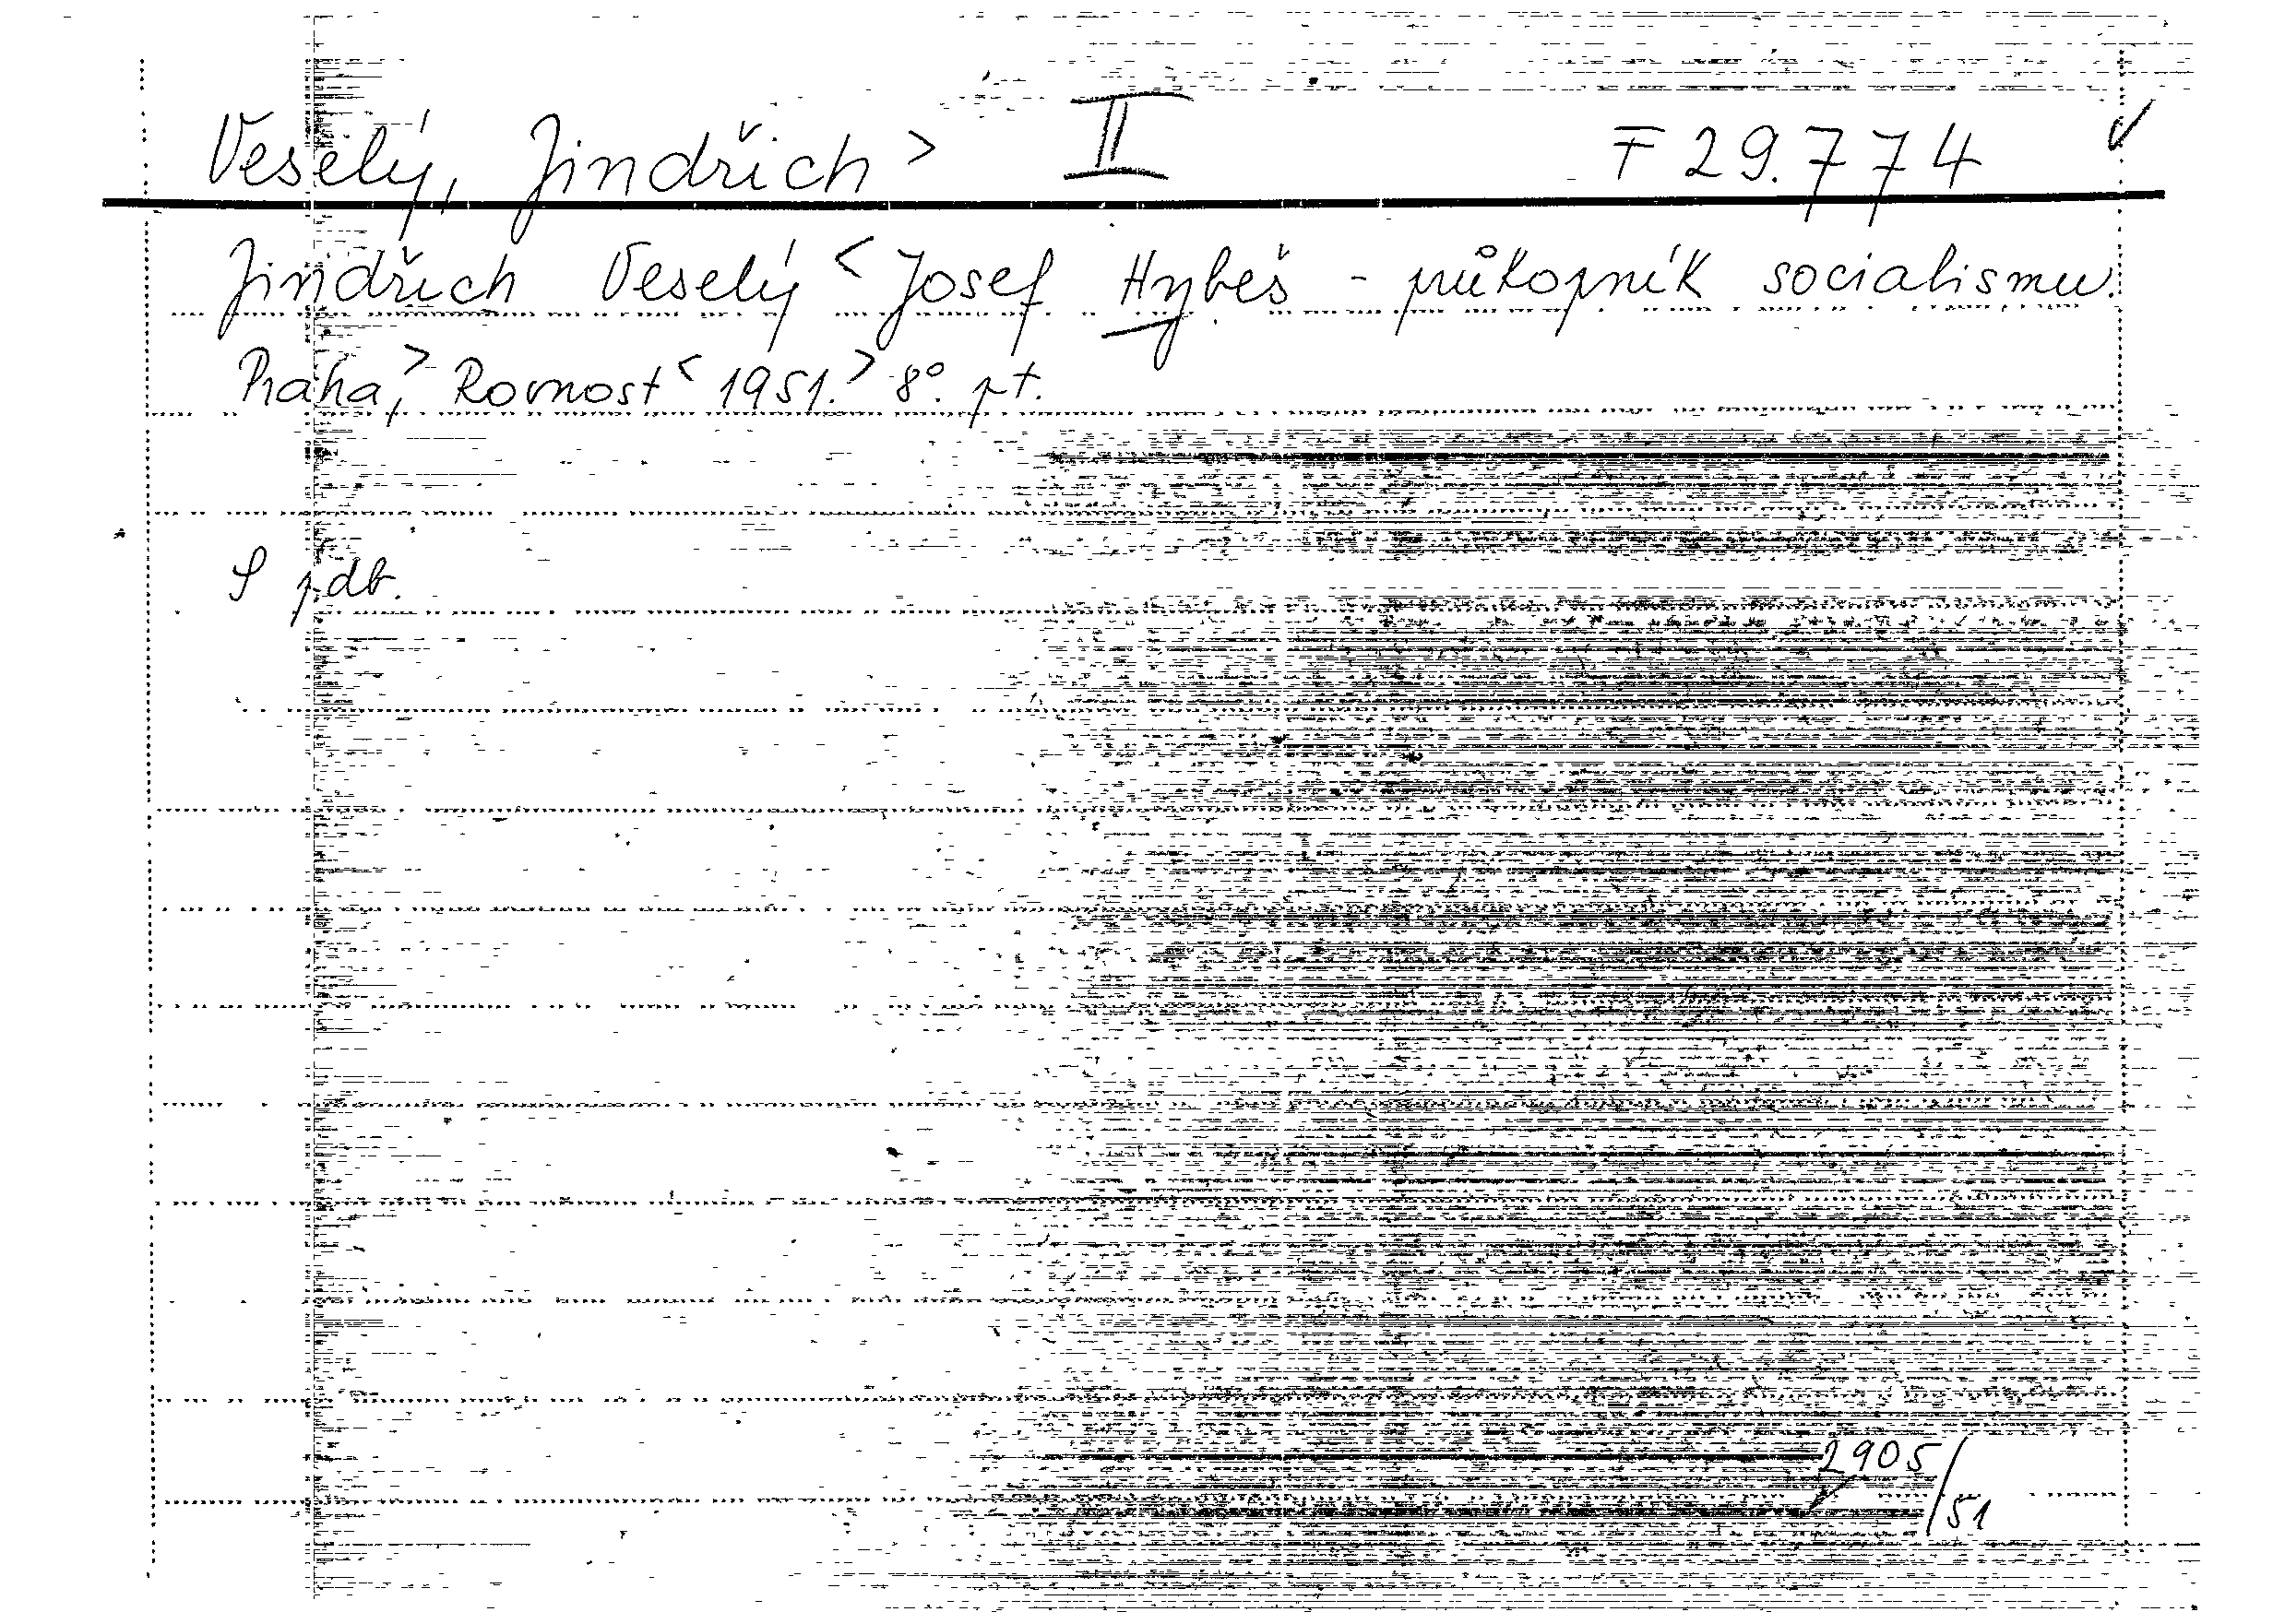 Veselý, Jindřich > II F 29.774
Jindřich Veselý < Josef Hybeš - průkopník socialismu.
Praha, > Rovnost < 1951. > 8°. pt.
S pdb.
2905/51